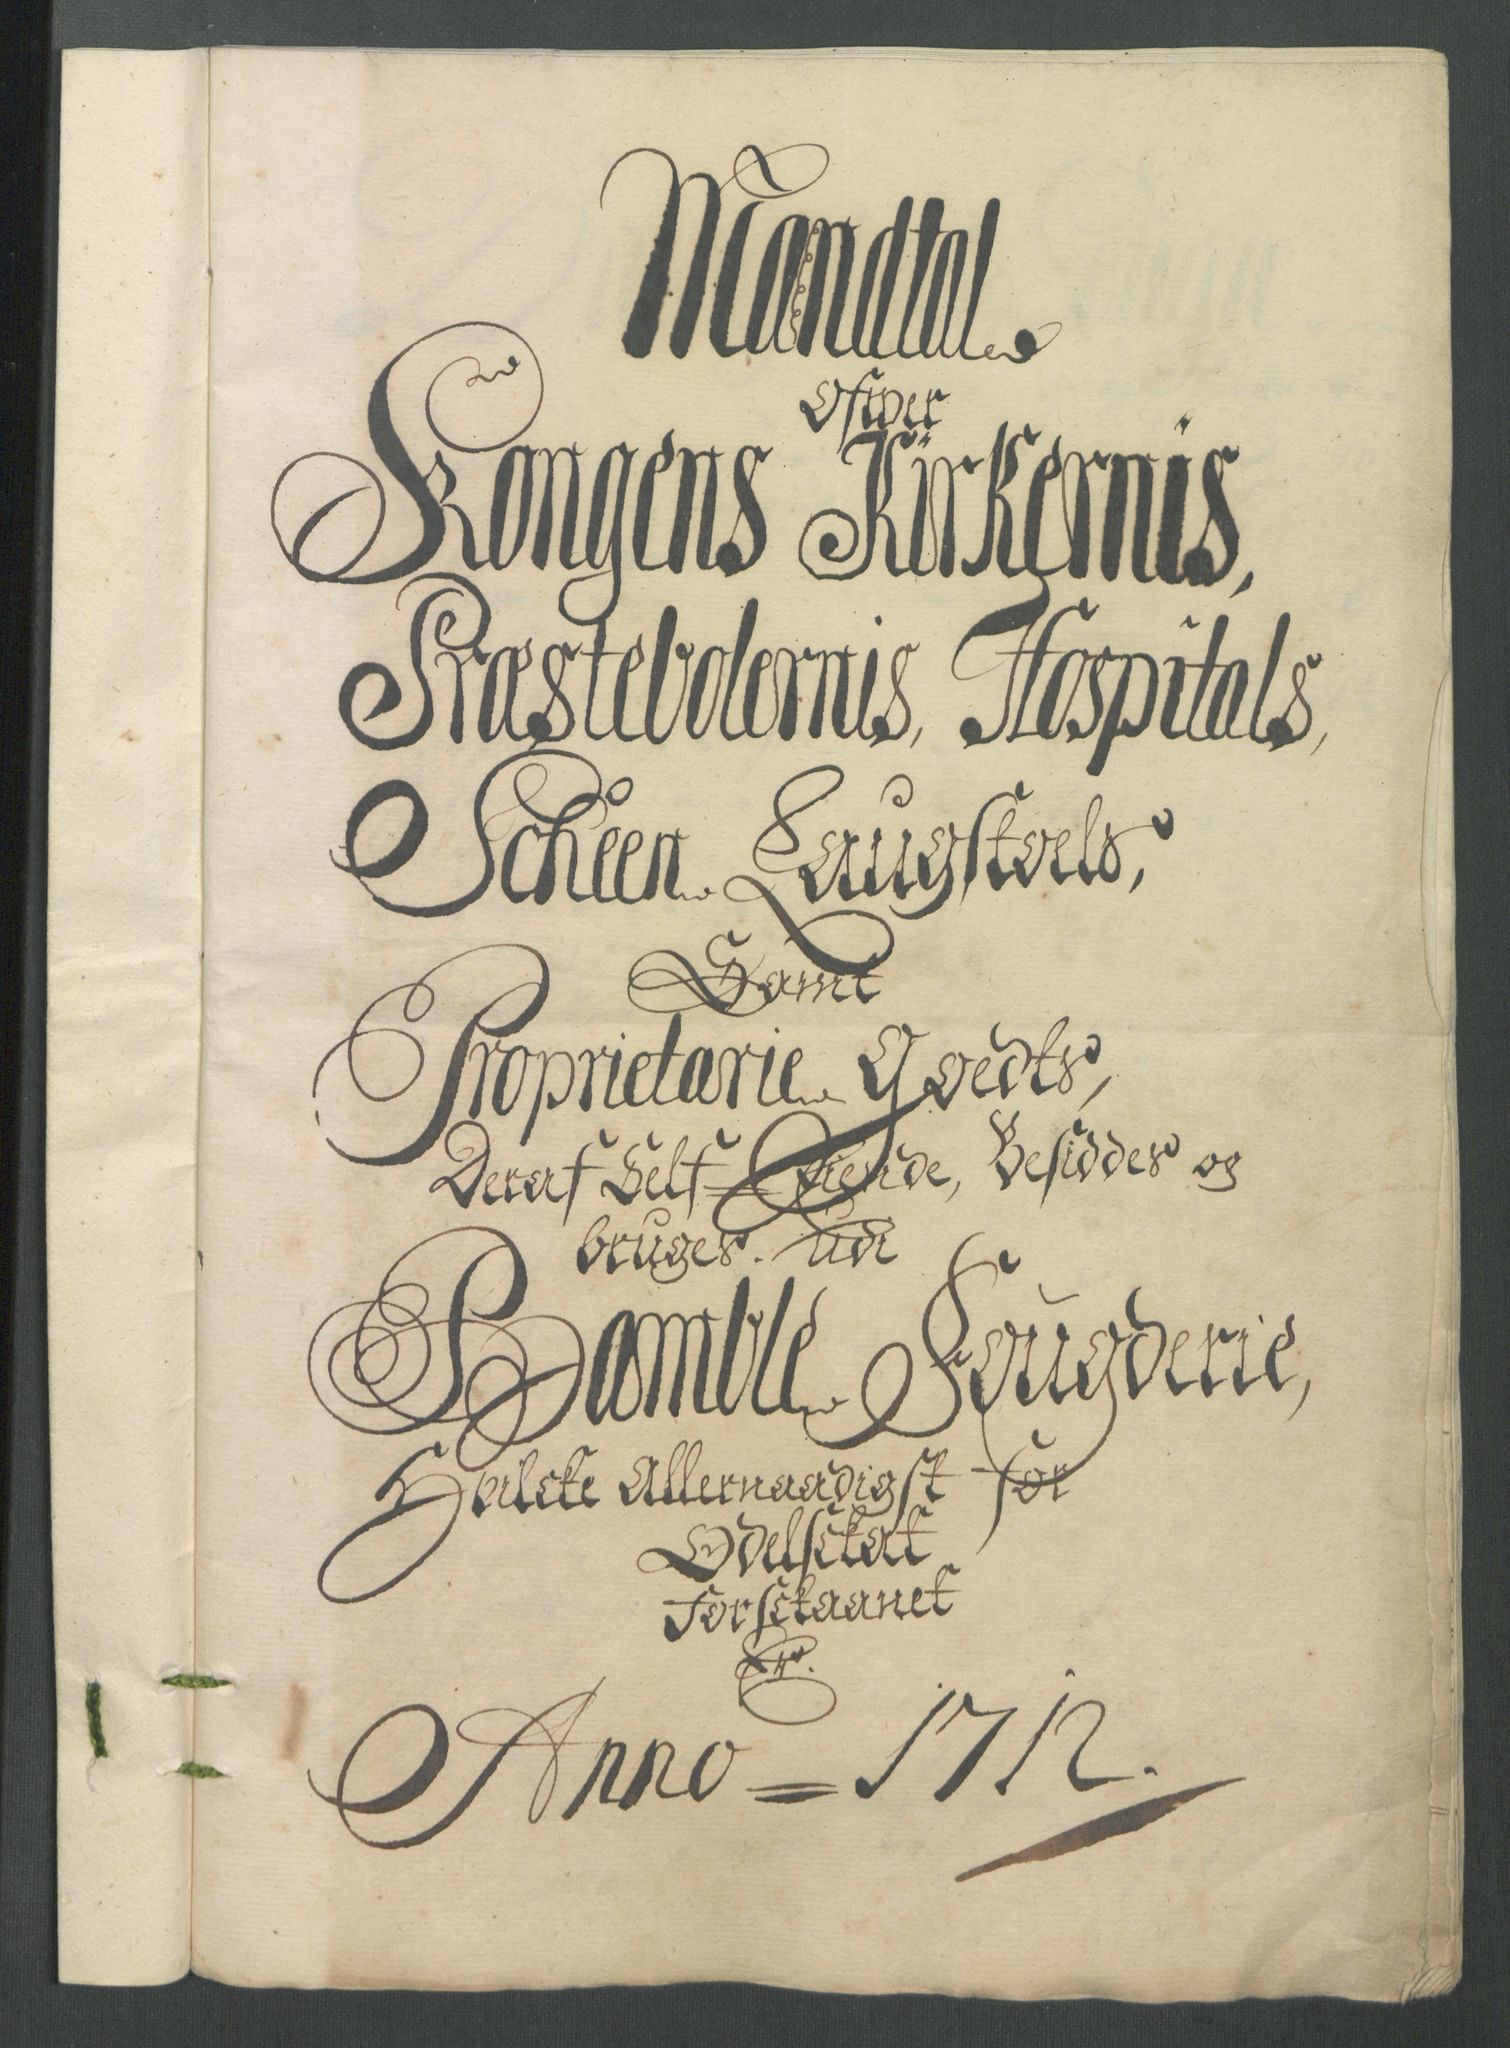 Mandtal
Ofwer
Kongens Kirkernis,
Præstebolernis, Hospitals,
Scheen Laugstoels,
Samt
Proprietarie Goedts,
Deraf Self=Eiende, Besiddes og
bruges. Udi
Bamble Fougderie,
Hvilcke Allernaadigst for
Odelsckat
forsckaanet
Er.
Anno = 1712.